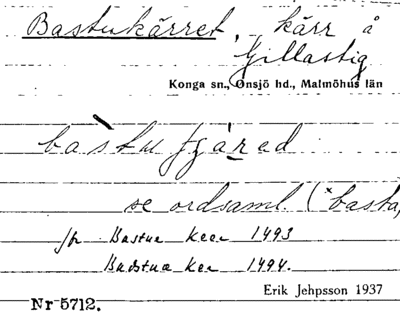 Bastukärret, kärr å
Gillastig
Konga sn., Onsjö hd., Malmöhus län
bastu
se ordsaml. (*basta,
jfr Bastue Keer 1493
Budstua Ker 1494.
Erik Jehpsson 1937
Nr 5712.